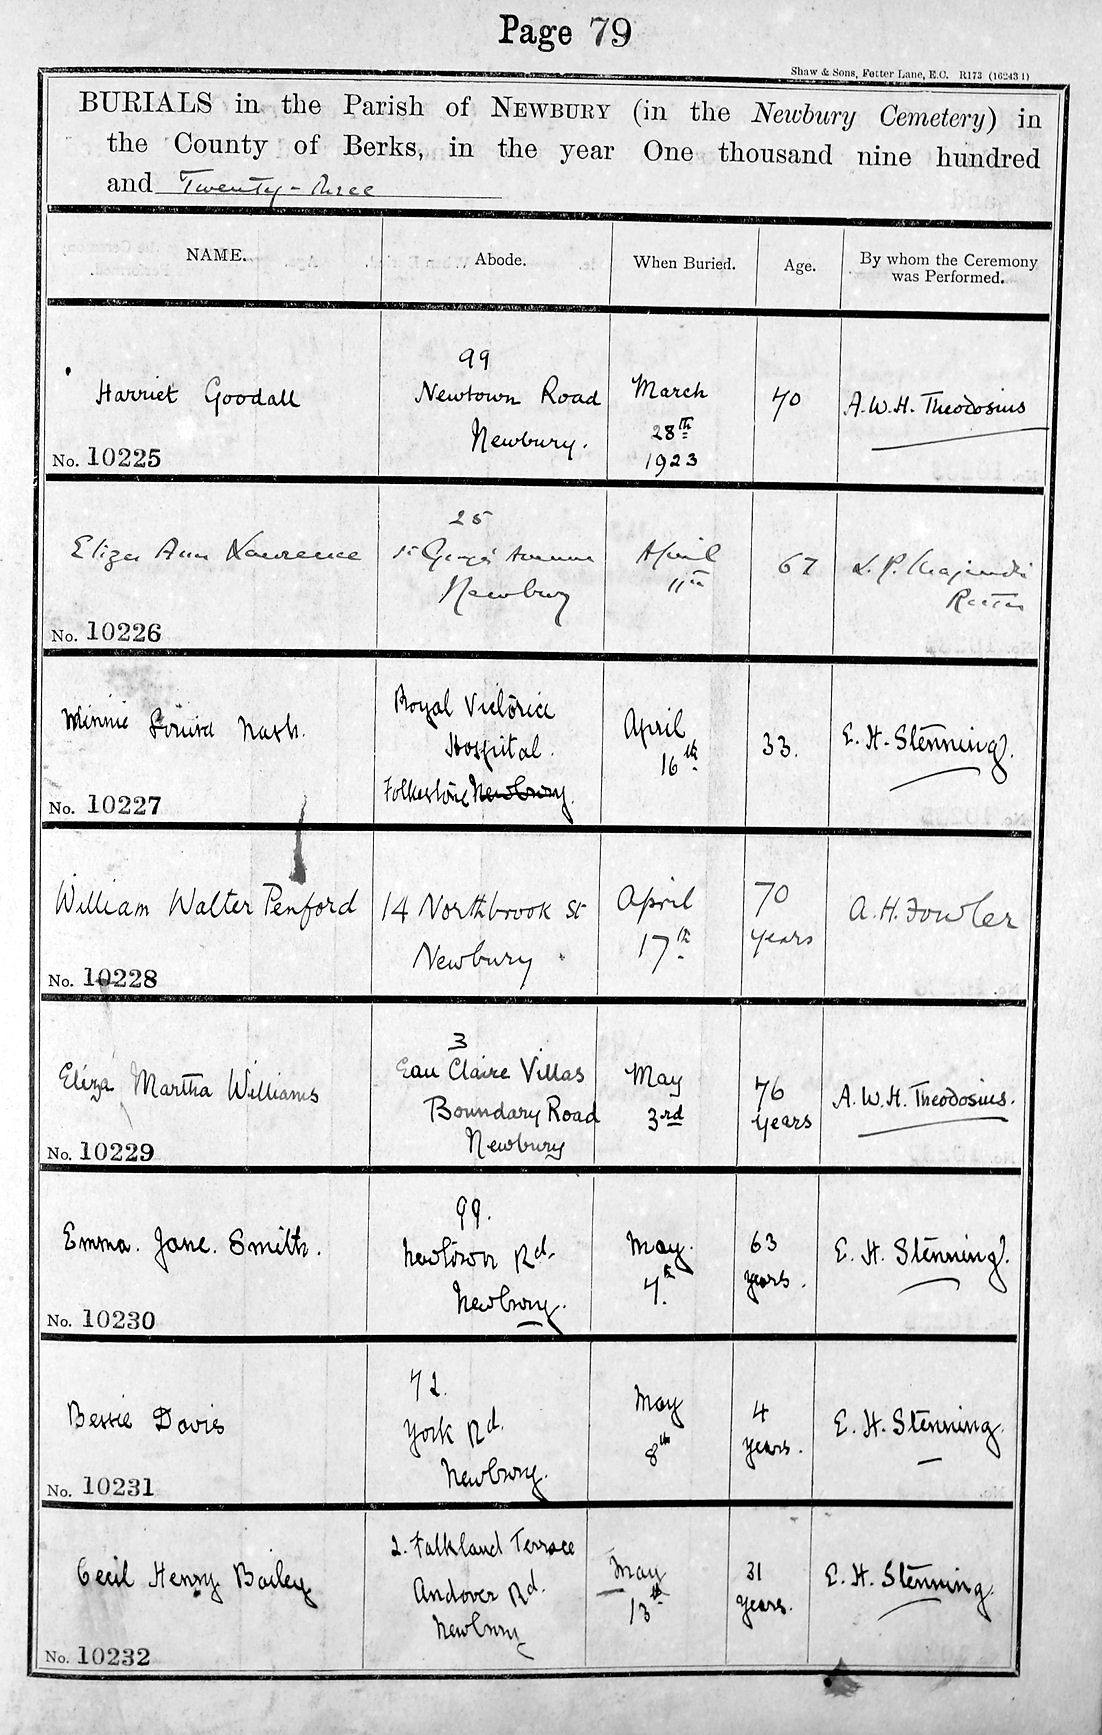 Page 79
Shaw & Sons, Fetter Lane, E.C. R173 (16243 1)
BURIALS in the Parish of NEWBURY (in the Newbury Cemetery) in
the County of Berks, in the year One thousand nine hundred
and Twenty-three
NAME. Abode. When Buried. Age. By whom the Ceremony
was Performed.
Harriet Goodall
99
Newtown Road
Newbury.
March
28th
1923
70
A.W.H. Theodosius
No. 10225
Eliza Ann Lawrence
25
St Georges Avenue
Newbury
April
11th
67
L. P. Majendie
Rector
No. 10226
Minnie Louisa Nash.
Royal Victoria
Hospital.
Folkestone Newbury.
April
16th
33.
E. H. Stenning.
No. 10227
William Walter Penford
14 Northbrook St
Newbury
April
17th
70
years
A. H. Fowler
No. 10228
Eliza Martha Williams
3
Eau Claire Villas
Boundary Road
Newbury
May
3rd
76
years
A.W.H. Theodosius.
No. 10229
Emma. Jane. Smith.
99.
Newtown Rd.
Newbury.
May.
7th
63
years.
E. H. Stenning.
No. 10230
Bessie Davis
72.
York Rd.
Newbury.
May
8th
4
years.
E. H. Stenning.
No. 10231
Cecil Henry Bailey
2. Falkland Terrace
Andover Rd.
Newbury
May
13th
31
years.
E. H. Stenning.
No. 10232